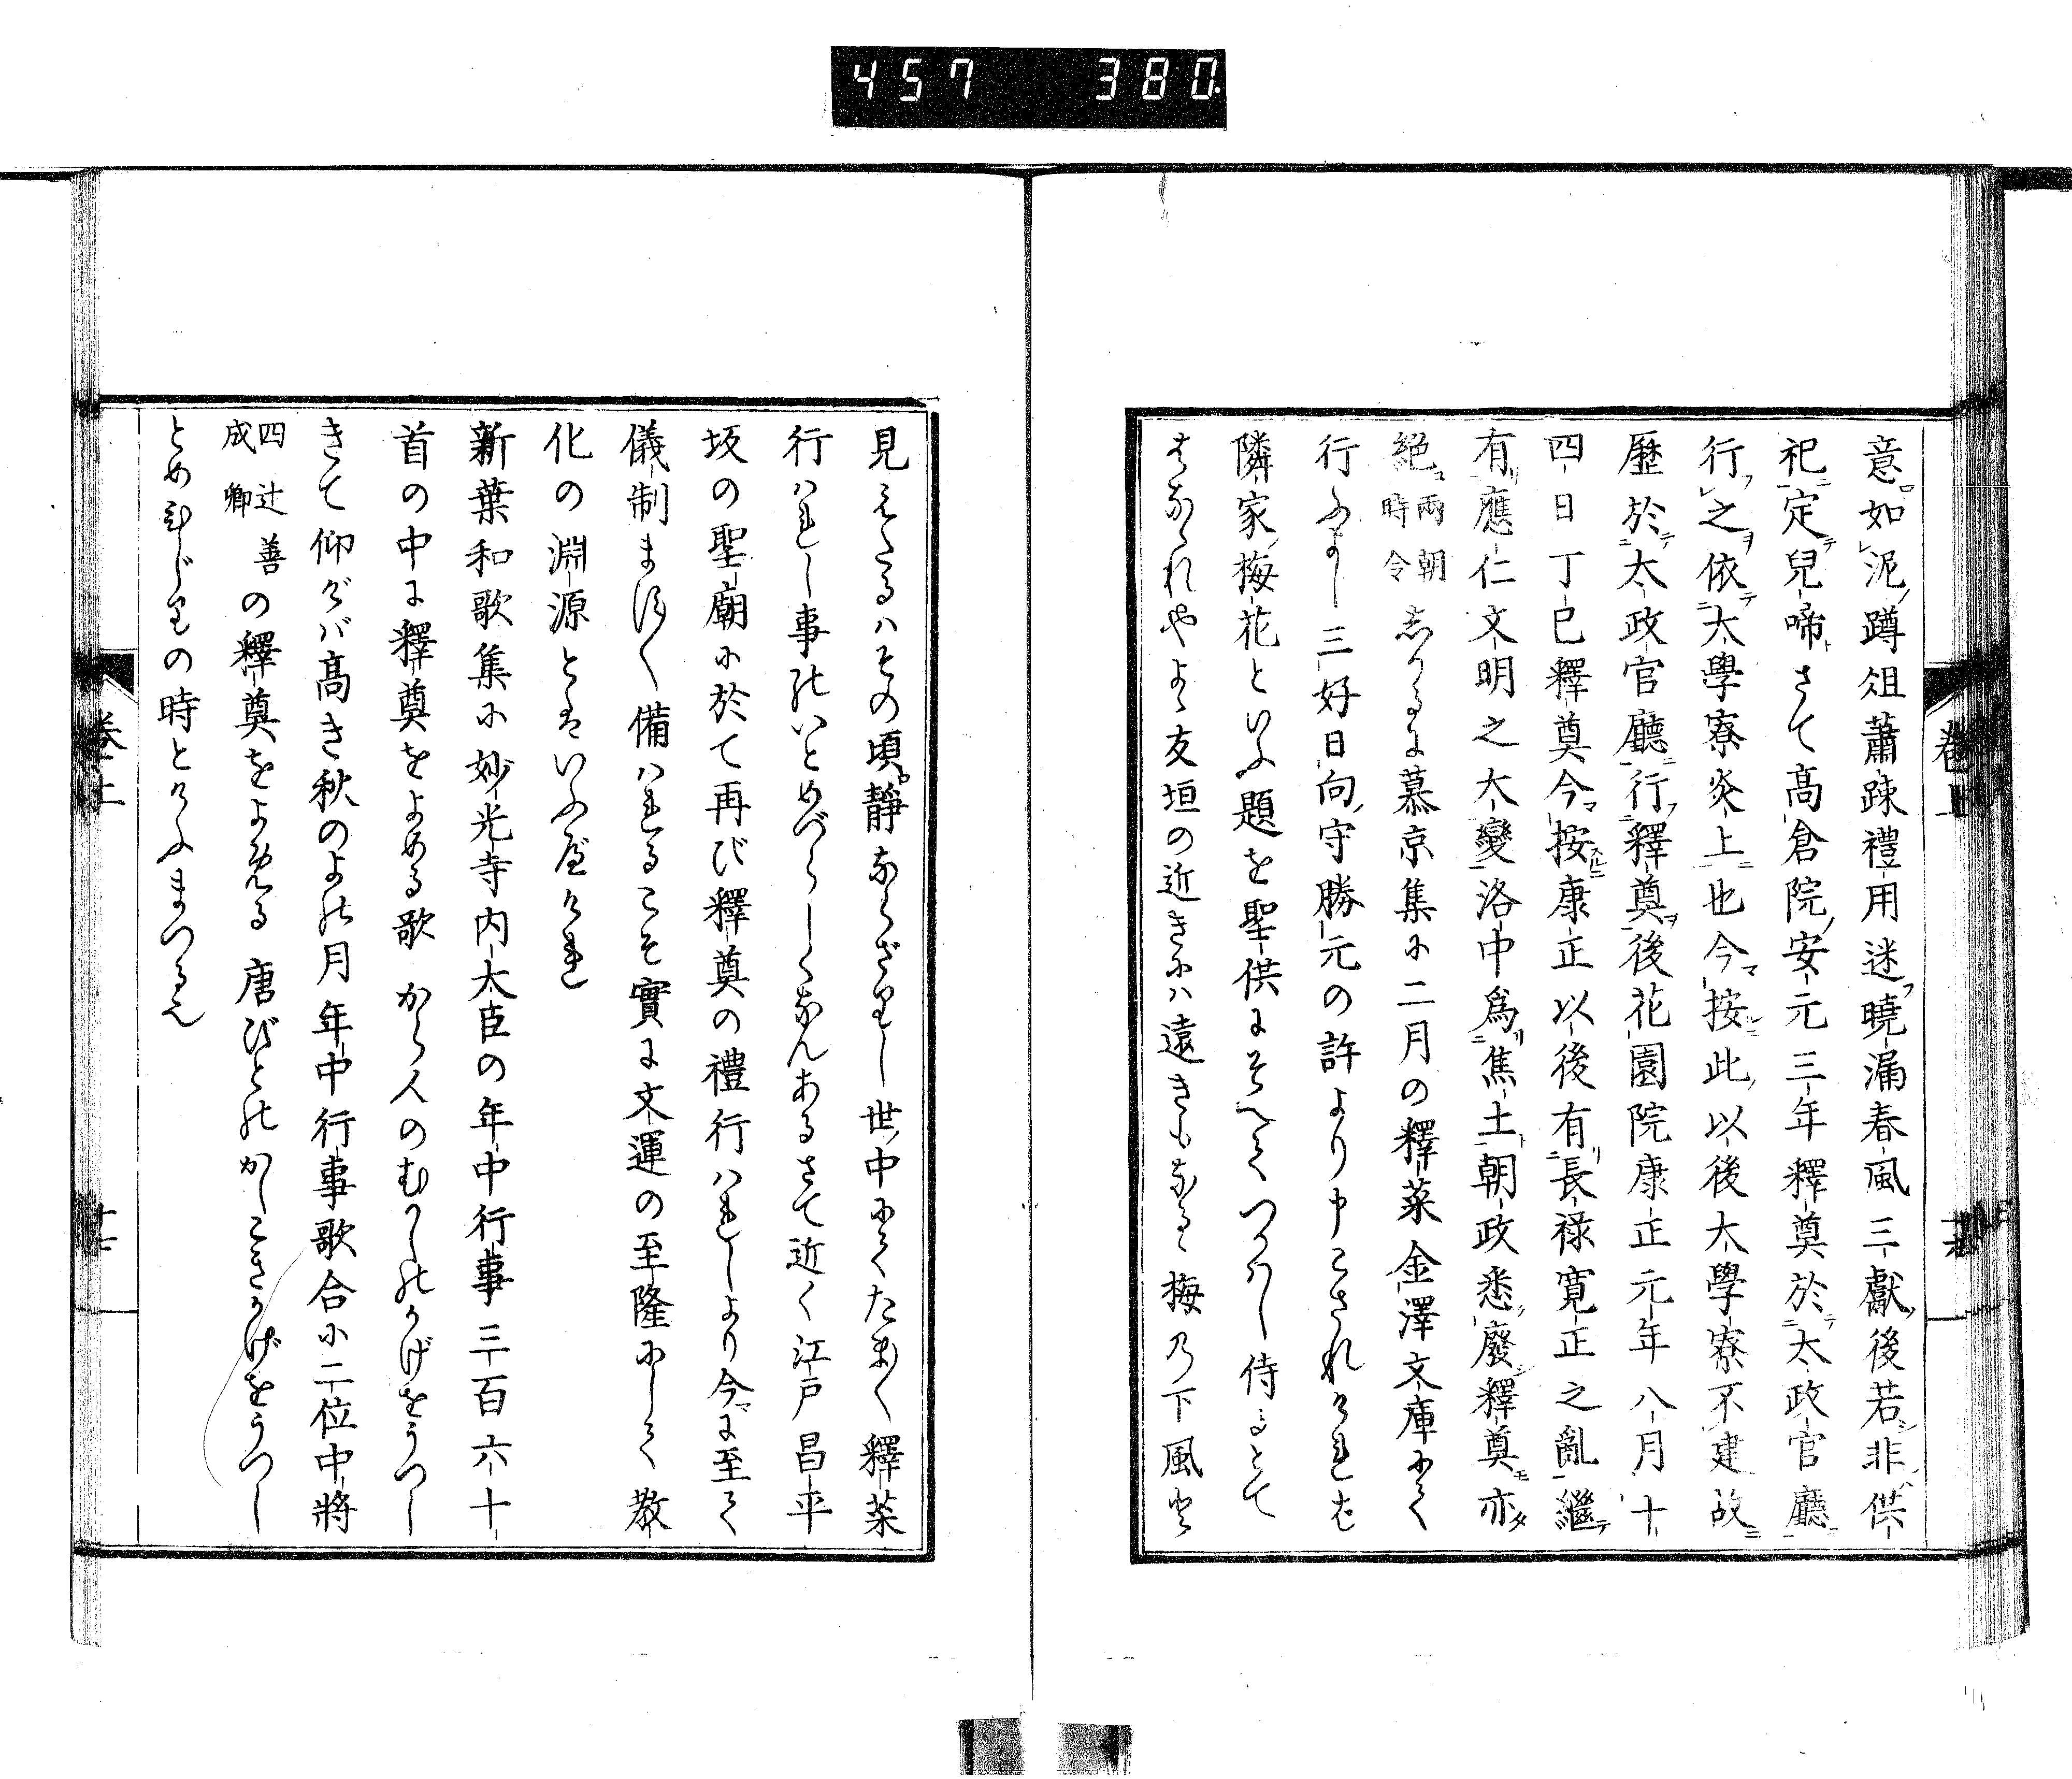 457 380
意如泥蹲俎蕭疎禮用迷曉漏春風三獻後若非供
祀定兒啼さて髙倉院安元三年釋奠於太政官廳
行之依大學寮炎上也今按此以後大學寮不建故
歴於太政官廳行釋奠後花園院康正元年八月十
四日丁巳釋奠今按康正以後有長禄寛正之亂繼
有應仁文明之大變洛中爲焦土朝政悉廢釋奠亦
絕兩朝時令志かるに慕京集に二月の釋菜金澤文庫にて
行ふよし三好日向守勝元の許より申こされけれむ
隣家梅花といふ題を聖供にそへてつかハし侍るとて
はなれやよ友垣の近きにハ遠きもなる梅乃下風と
見えたるハその頃靜ならざりし世中にてたま〱釋菜
行ハれし事のいとめづらしくなんあるさて近く江戸昌平
坂の聖廟に於て再び釋奠の禮行ハれしより今に至て
儀制ます〱備ハれるこそ實に文運の至隆にして教
化の淵源とはいふ遍けれ
新葉和歌集に妙光寺内大臣の年中行事三百六十
首の中に釋奠をよめる歌 から人のむかしのかげをうつし
きて仰げバ髙き秋のよの月年中行事歌合に二位中將
四辻善成卿の釋奠をよめる 唐びとのかしこきかげをうつし
とめひじりの時とけふまつるん
卷上
卷上